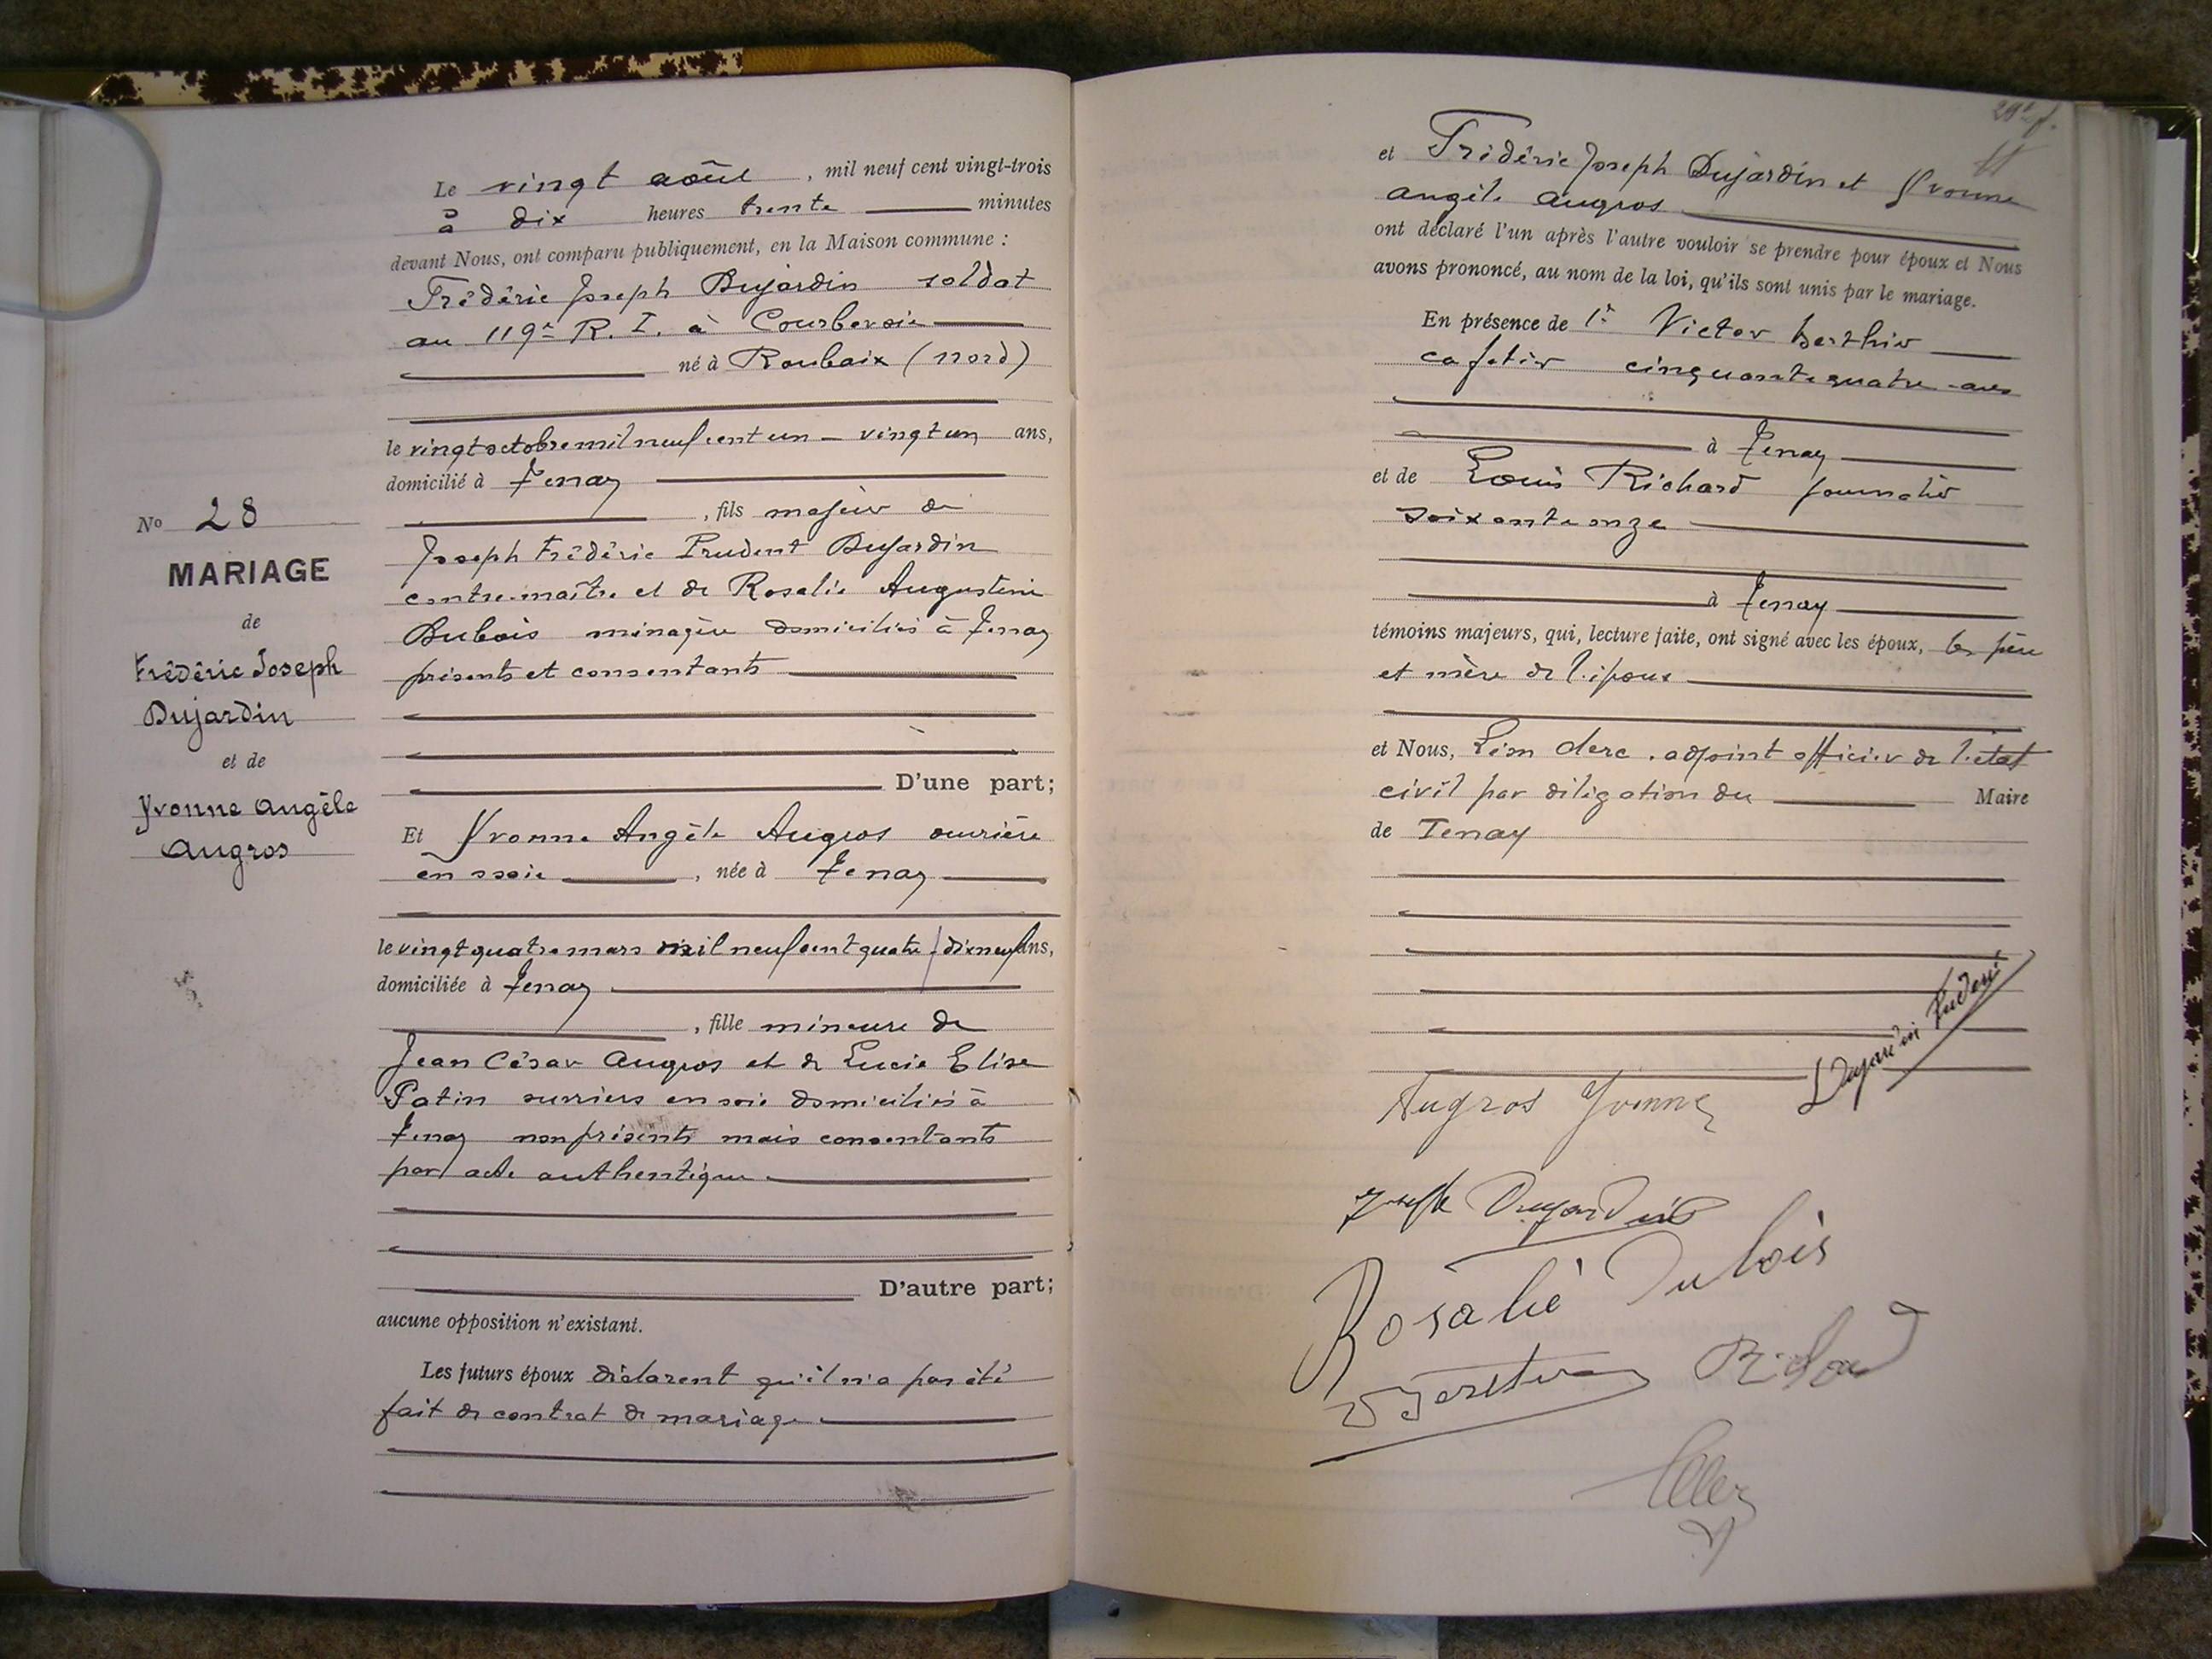 N° 28
MARIAGE
de
Frédéric Joseph
Dujardin
et de
Yvonne Angèle
Augros
Le vingt août, mil neuf cent vingt-trois
à dix heures trente minutes
devant Nous, ont comparu publiquement, en la Maison commune :
Frédéric Joseph Dujardin soldat
au 119e R. I. à Courbevoie
né à Roubaix (nord)
le vingt octobre mil neuf cent un – vingt un ans,
domicilié à Tenay
, fils majeur de
Joseph Frédéric Prudent Dujardin
contre-maître et de Rosalie Augustine
Dubois ménagère domiciliés à Tenay
présents et consentants
D'une part;
Et Yvonne Angèle Augros ouvrière
en soie, née à Tenay
le vingt quatre mars mil neuf cent quatre / dix neuf ans,
domiciliée à Tenay
, fille mineure de
Jean César Augros et de Lucie Elise
Patin ouvriers en soie domiciliés à
Tenay non présents mais consentants
par acte authentique
D'autre part;
aucune opposition n'existant.
Les futurs époux déclarent qu'il n'a pas été
fait de contrat de mariage
et Frédéric Joseph Dujardin et Yvonne
angèle augros
ont déclaré l'un après l'autre vouloir se prendre pour époux et Nous
avons prononcé, au nom de la loi, qu'ils sont unis par le mariage.
En présence de 1° Victor Berthier
cafetier cinquante quatre ans
à Tenay
et de Louis Richard journalier
soixante onze
à Tenay
témoins majeurs, qui, lecture faite, ont signé avec les époux, les père
et mère de l'époux
et Nous, Léon Clerc, adjoint officier de l'état
civil par délégation du Maire
de Tenay
Dujardin
Augros Yvonne
Joseph Dujardin
Rosalie Dubois
Berthier Richard